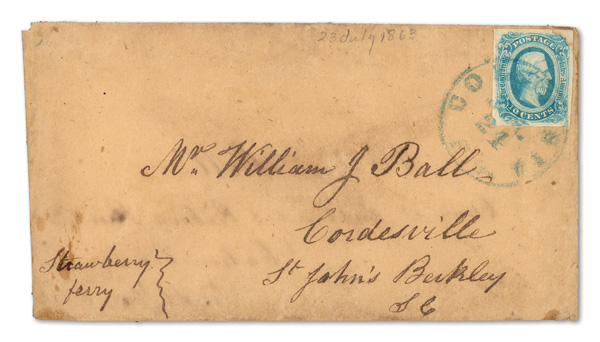 23 July 1863
POSTAGE
10 CENTS
24
Mr. William J Ball
Cordesville
St John's Berkley
S C
Strawberry
ferry